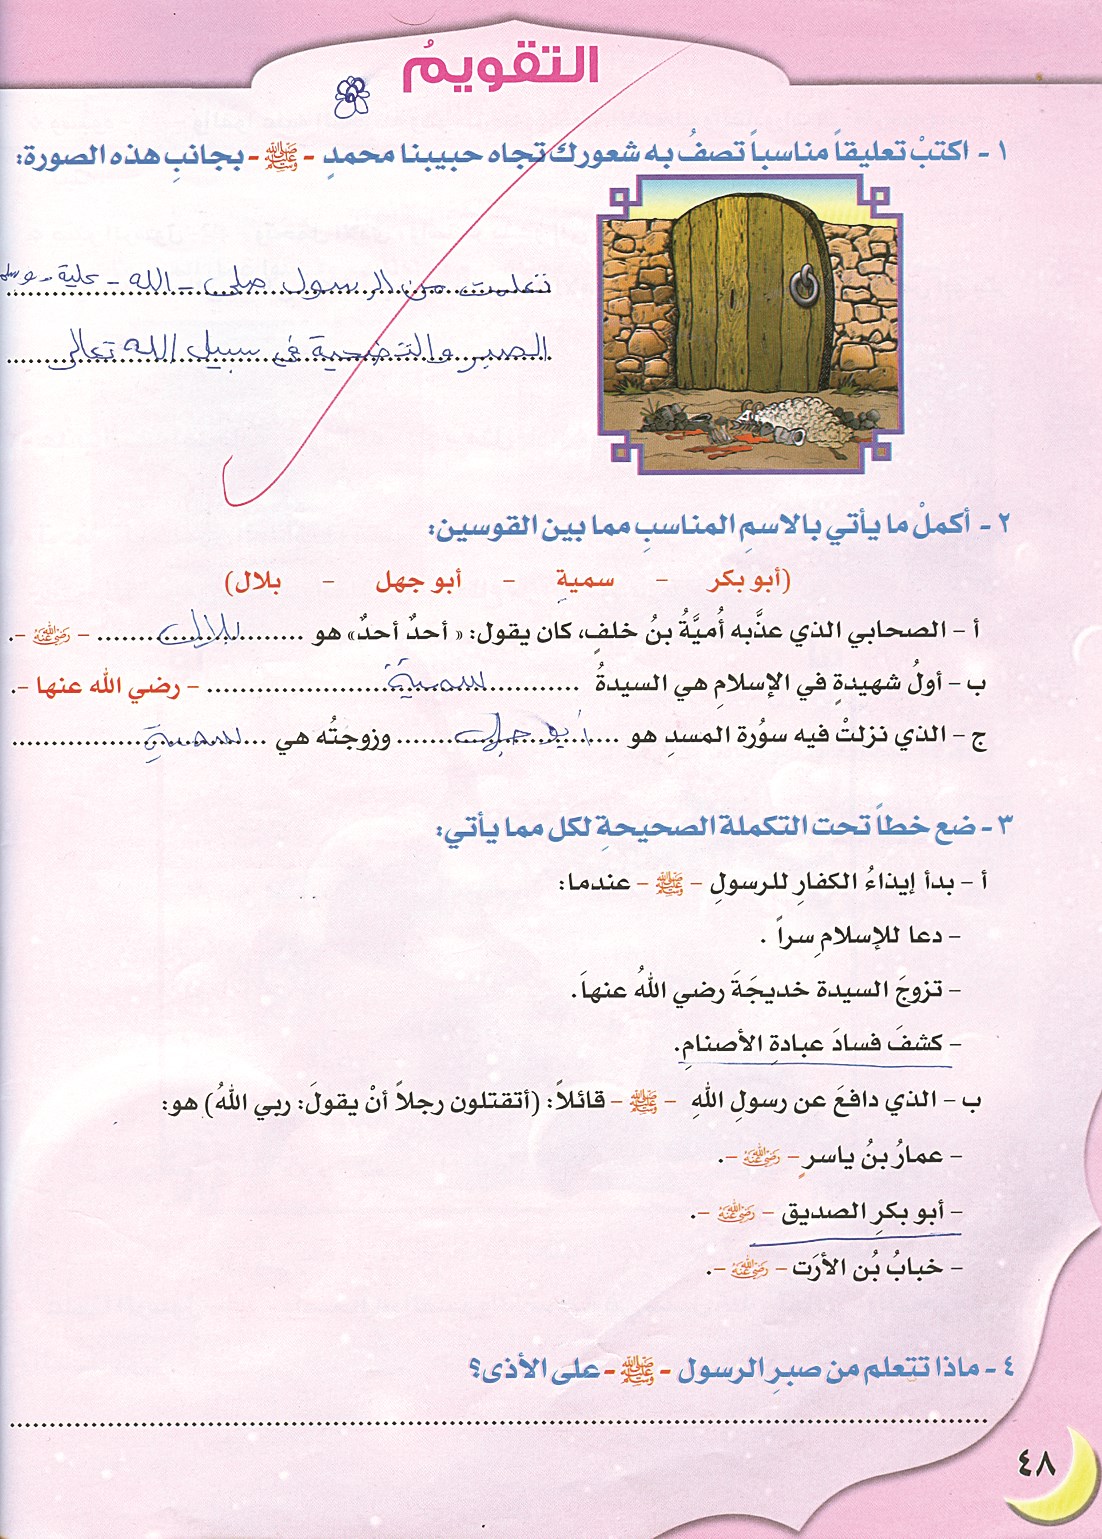 التقويمُ
١ - اكتبْ تعليقاً مناسباً تصفُ به شعورك تجاه حبيبنا محمدٍ - ﷺ - بجانبِ هذه الصورة:
تعلمت من الرسول صلى الله علية وسلم
الصبر والتضحية في سبيل الله تعالى
٢ - أكملْ ما يأتي بالاسمِ المناسبِ مما بين القوسين:
(أبو بكر - سمية - أبو جهل - بلال)
أ - الصحابي الذي عذَّبه أُميَّةُ بنُ خلفٍ، كان يقول: « أحدٌ أحدٌ» هو ........ بلال ........ - رضي الله عنه -.
ب - أولُ شهيدةٍ في الإسلامِ هي السيدةُ ........ سمية ........ - رضي الله عنها -.
ج - الذي نزلتْ فيه سوُرة المسدِ هو ........ أبو جهل ........ وزوجتُه هي ........ سمية ........
٣ - ضع خطاً تحت التكملة الصحيحةِ لكل مما يأتي:
أ - بدأ إيذاءُ الكفارِ للرسولِ - ﷺ - عندما:
- دعا للإسلامِ سراً .
- تزوجَ السيدة خديجَةَ رضي اللهُ عنهاَ.
- كشفَ فسادَ عبادةِ الأصنامِ.
ب - الذي دافعَ عن رسولِ اللهِ - ﷺ - قائلاً: (أتقتلون رجلاً أنْ يقولَ: ربي اللهُ) هو:
- عمارُ بنُ ياسرٍ - رضي الله عنه -.
- أبو بكرِ الصديق - رضي الله عنه -.
- خبابُ بُن الأرَت - رضي الله عنه -.
٤ - ماذا تتعلم من صبرِ الرسول - ﷺ - على الأذى؟
٤٨